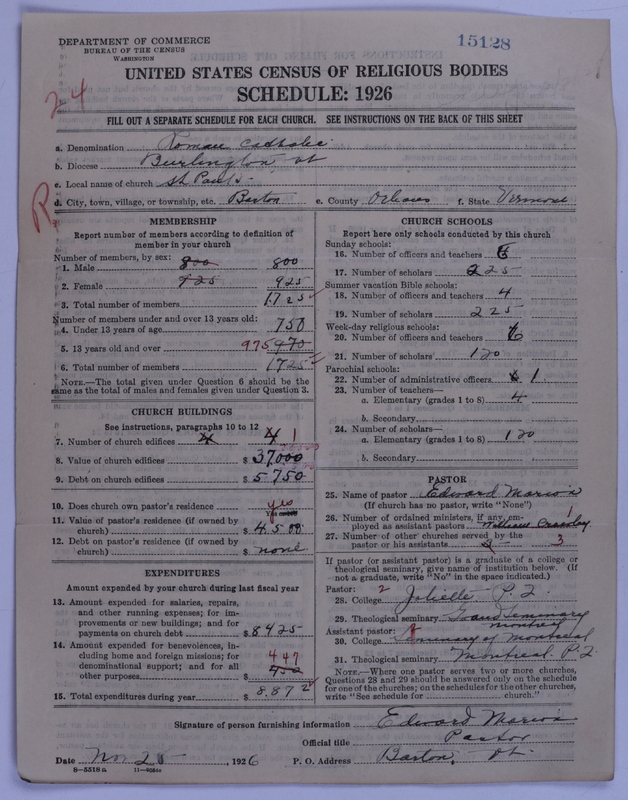 DEPARTMENT OF COMMERCE
BUREAU OF THE CENSUS
WASHINGTON
15128
UNITED STATES CENSUS OF RELIGIOUS BODIES
SCHEDULE: 1926
24
FILL OUT A SEPARATE SCHEDULE FOR EACH CHURCH. SEE INSTRUCTIONS ON THE BACK OF THIS SHEET
a. Denomination Roman Catholic
b. Diocese Burlington Vt
c. Local name of church St Paul's
d. City, town, village, or township, etc. Barton e. County Orleans f. State Vermont
R
MEMBERSHIP
Report number of members according to definition of
member in your church
Number of members, by sex:
1. Male 800 800
2. Female 925 925
3. Total number of members 1725
Number of members under and over 13 years old:
4. Under 13 years of age 750
5. 13 years old and over 975 970
6. Total number of members 1725
NOTE.—The total given under Question 6 should be the
same as the total of males and females given under Question 3.
CHURCH BUILDINGS
See instructions, paragraphs 10 to 12
7. Number of church edifices 4 4 1
8. Value of church edifices $ 37,000
9. Debt on church edifices $ 5750
10. Does church own pastor's residence yes
11. Value of pastor's residence (if owned by
church) $ 4500
12. Debt on pastor's residence (if owned by
church) $ none
EXPENDITURES
Amount expended by your church during last fiscal year
13. Amount expended for salaries, repairs,
and other running expenses; for im-
provements or new buildings; and for
payments on church debt $ 8425
14. Amount expended for benevolences, in-
cluding home and foreign missions; for
denominational support; and for all
other purposes $ 447 450
15. Total expenditures during year $ 8.872
CHURCH SCHOOLS
Report here only schools conducted by this church
Sunday schools:
16. Number of officers and teachers 6
17. Number of scholars 225
Summer vacation Bible schools:
18. Number of officers and teachers 4
19. Number of scholars 225
Week-day religious schools:
20. Number of officers and teachers 6
21. Number of scholars 120
Parochial schools:
22. Number of administrative officers 1
23. Number of teachers—
a. Elementary (grades 1 to 8) 4
b. Secondary
24. Number of scholars—
a. Elementary (grades 1 to 8) 120
b. Secondary
PASTOR
25. Name of pastor Edward Marion
(If church has no pastor, write "None")
26. Number of ordained ministers, if any, em-
ployed as assistant pastors 1
27. Number of other churches served by the
pastor or his assistants 3
If pastor (or assistant pastor) is a graduate of a college or
theological seminary, give name of institution below. (If
not a graduate, write "No" in the space indicated.)
Pastor: 2
28. College Joliette P. Q.
29. Theological seminary Grand Seminary
Montreal
Assistant pastor:
30. College Seminary of Montreal
31. Theological seminary Montreal P. Q.
NOTE.—Where one pastor serves two or more churches,
Questions 28 and 29 should be answered only on the schedule
for one of the churches; on the schedules for the other churches,
write "See schedule for church."
Signature of person furnishing information Edward Marion
Official title Pastor
Date Nov 28, 1926 P. O. Address Barton, Vt.
8—5518a 11—9054